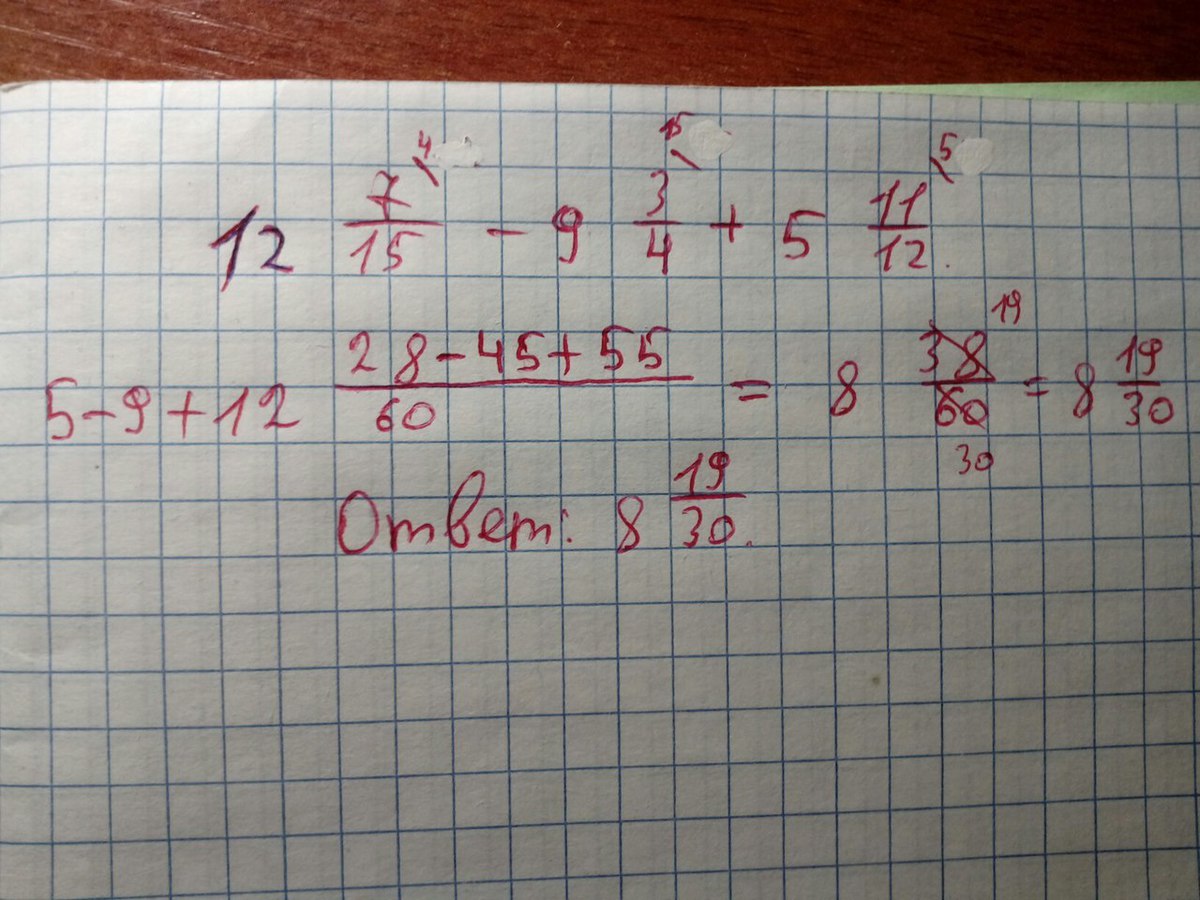 12 7/15 \4 - 9 3/4 \15 + 5 11/12 \5.
5-9+12 28-45+55/60 = 8 38/60 19 30 = 8 19/30
Ответ: 8 19/30.